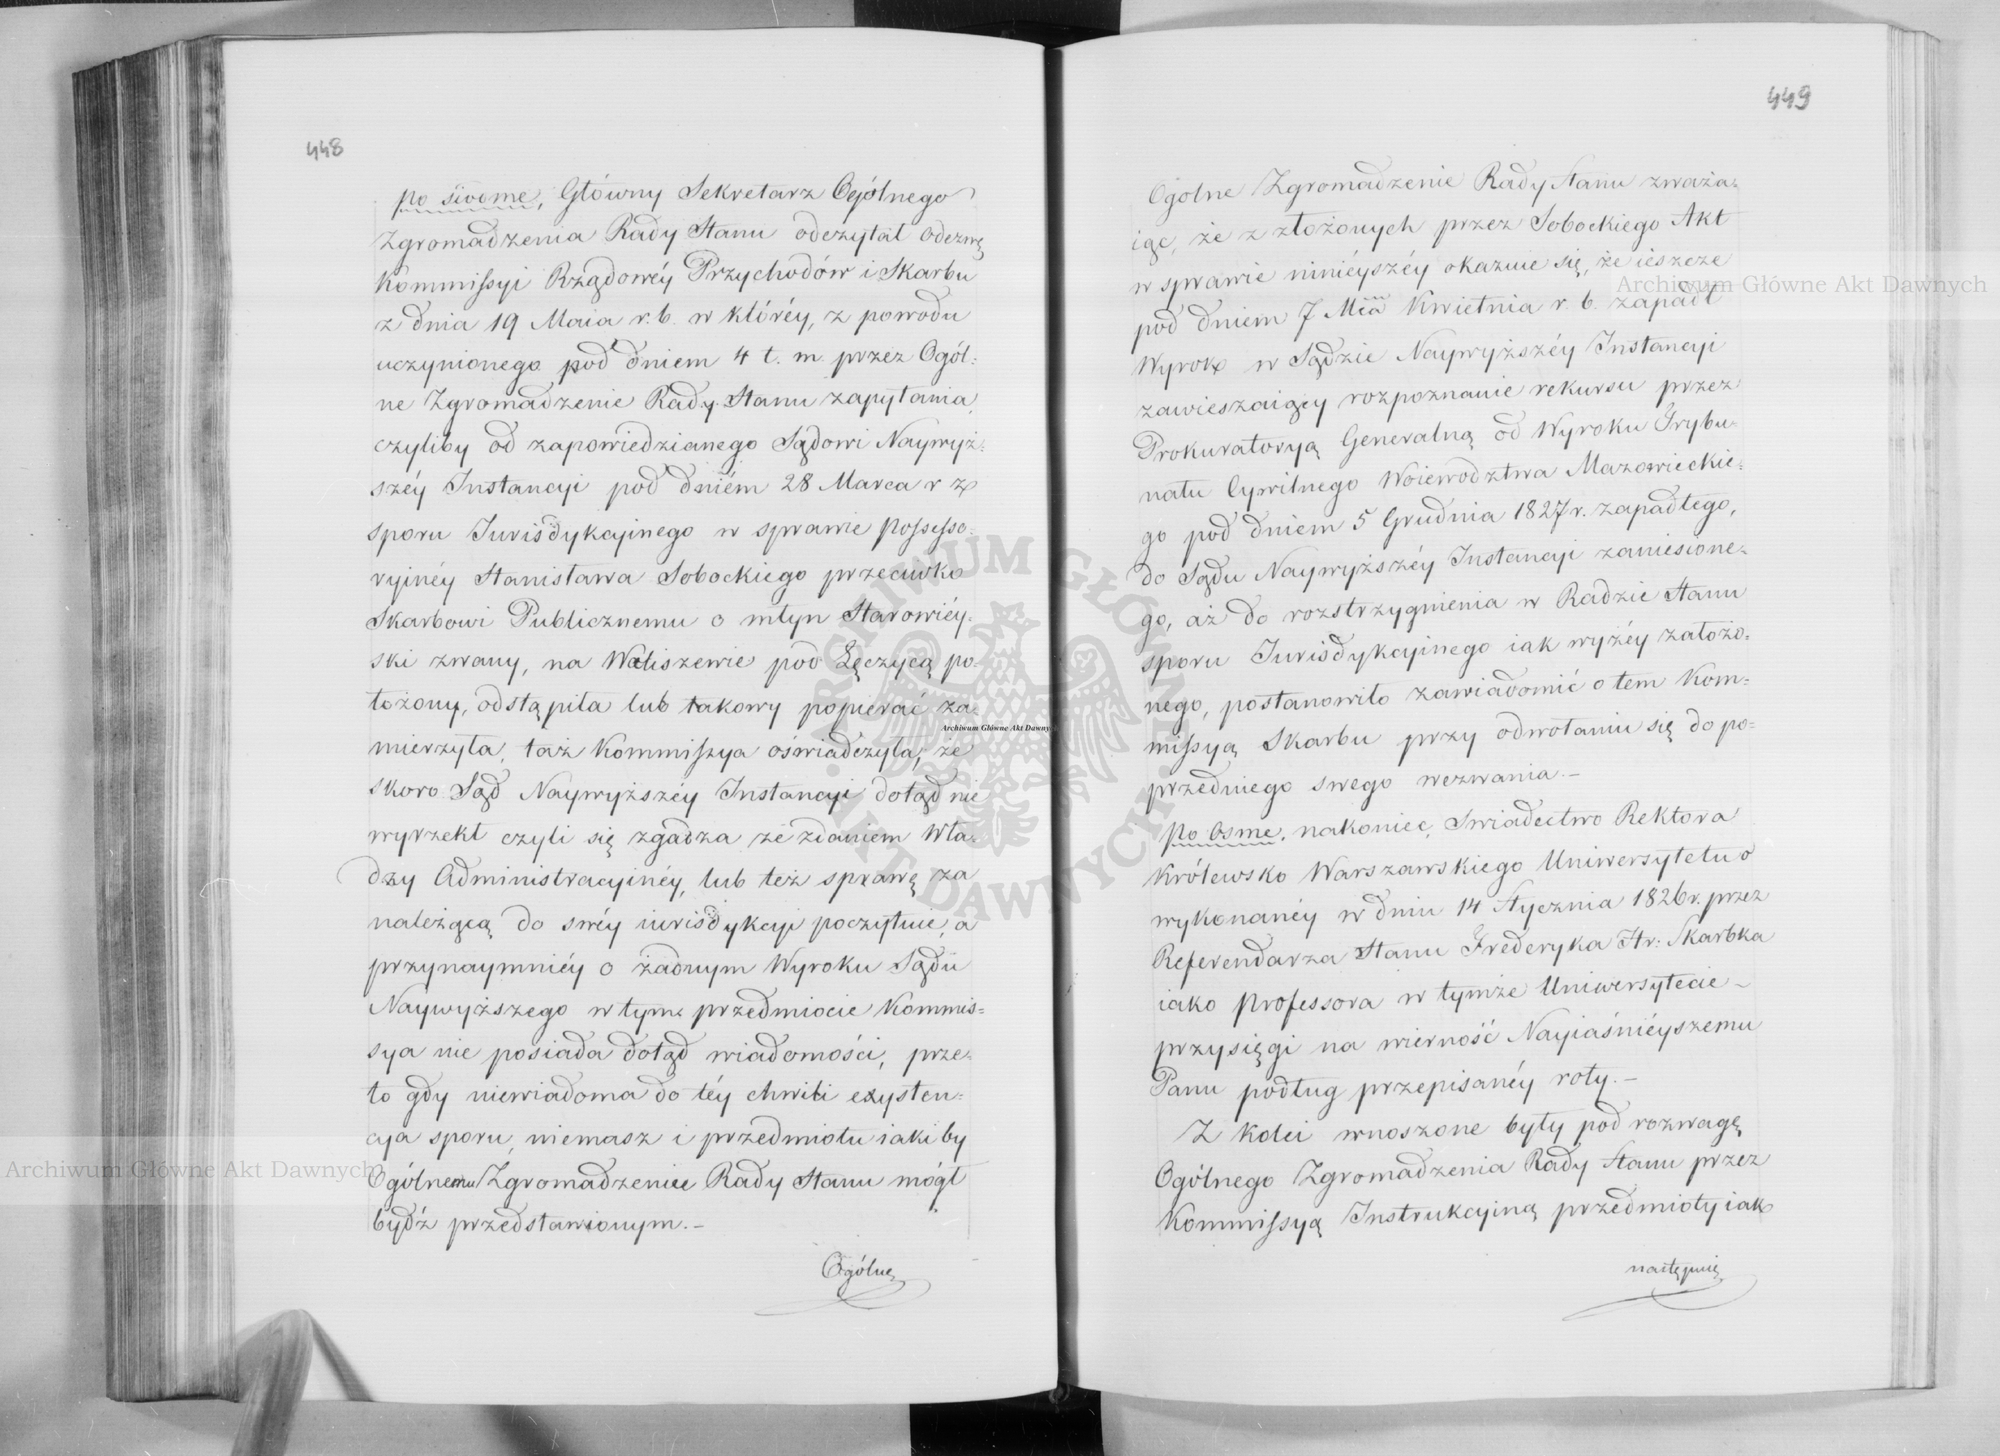 448
po siódme, Główny Sekretarz Ogólnego
Zgromadzenia Rady Stanu odczytał odezwę
Kommissyi Rządowéy Przychodów i Skarbu
z dnia 19 Maia r. b. w któréy, z powodu
uczynionego pod dniem 4 t. m. przez Ogól:
ne Zgromadzenie Rady Stanu zapytania,
czyliby od zapowiedzianego Sądowi Naywyż:
széy Instancyi pod dniém 28 Marca r z
sporu Jurisdykcyinego w sprawie possesso:
ryinéy Stanisława Sobockiego przeciwko
Skarbowi Publicznemu o młyn Starowiéy:
ski zwany, na Waliszewie pod Łęczycą po:
łożony, odstąpiła lub takowy popierać za:
mierzyła, taż Kommissya oświadczyła, że
skoro Sąd Naywyższéy Instancyi dotąd nie
wyrzekł czyli się zgadza ze zdaniem Wła:
dzy Administracyinéy, lub też sprawę za
należącą do swéy iurisdykcyi poczytuie, a
przynaymniéy o żadnym Wyroku Sądu
Naywyższego w tym przedmiocie Kommis=
sya nie posiada dotąd wiadomości, prze:
to gdy niewiadoma do téy chwili exysten:
cya sporu, niemasz i przedmiotu iakiby
Ogólnemu Zgromadzeniu Rady Stanu mógł
bydź przedstawionym.—
Ogólne
449
Ogolne Zgromadzenie Rady Stanu zważa:
iąc, że z złożonych przez Sobockiego Akt
w sprawie niniéyszéy okazuie się, że ieszcze
pod dniem 7 Mca Kwietnia r. b. zapadł
Wyrok w Sądzie Naywyższéy Instancyi
zawieszaiący rozpoznanie rekursu przez
Prokuratoryą Generalną od Wyroku Trybu:
nału Cywilnego Woiewodztwa Mazowieckie:
go pod dniem 5 Grudnia 1827 r. zapadłego,
do Sądu Naywyższéy Instancyi zaniesione:
go, aż do rozstrzygnienia w Radzie Stanu
sporu Jurisdykcyinego iak wyżéy założo:
nego, postanowiło zawiadomić o tem Kom:
missyą Skarbu przy odwołaniu się do po:
przedniego swego wezwania.—
po osme, nakoniec, Swiadectwo Rektora
Królewsko Warszawskiego Uniwersytetu o
wykonanéy w dniu 14 Stycznia 1826 r. przez
Referendarza Stanu Frederyka Hr: Skarbka
iako Professora w tymże Uniwersytecie —
przysięgi na wierność Nayiaśniéyszemu
Panu podług przepisanéy roty.—
Z kolei wnoszone były pod rozwagę
Ogólnego Zgromadzenia Rady Stanu przez
Kommissyą Instrukcyiną przedmioty iak
następnie
Archiwum Główne Akt Dawnych
Archiwum Główne Akt Dawnych
Archiwum Główne Akt Dawnych
ARCHIWUM GŁÓWNE AKT DAWNYCH